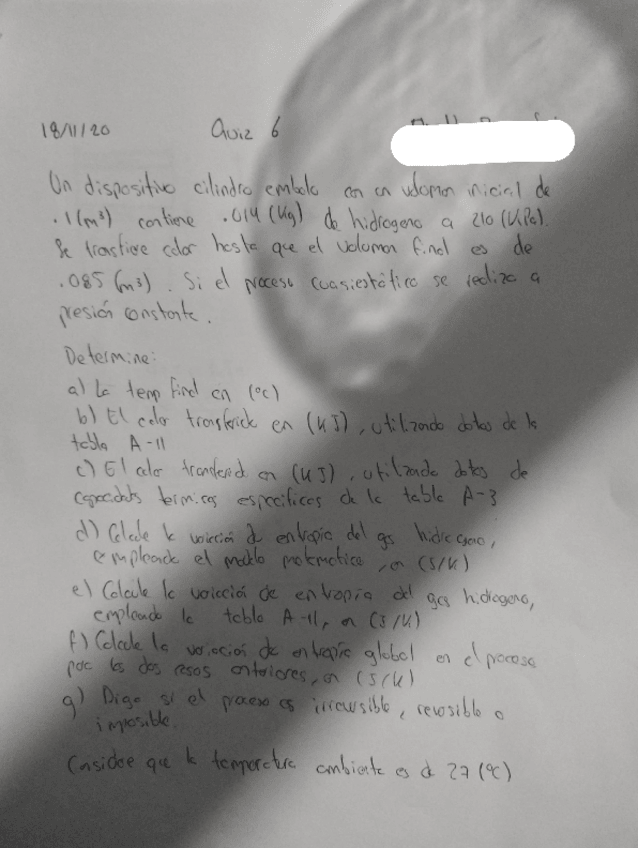 18/11/20 Quiz 6
Un dispositivo cilindro embolo con un volumen inicial de
.1(m³) contiene .014 (Kg) de hidrogeno a 210 (KPa).
Se transfiere calor hasta que el volumen final es de
.085 (m³). Si el proceso cuasiestático se realiza a
presión constante.
Determine:
a) La temp final en (°C)
b) El calor transferido en (KJ), utilizando datos de la
tabla A-11
c) El calor transferid en (KJ), utilizando datos de
capacidades termicas especificas de la tabla A-3
d) Calcule la variación de entropía del gas hidrogeno,
empleando el modelo matematico, en (J/K)
e) Calcule la variacción de entropía del gas hidrogeno,
empleando la tabla A-11, en (J/K)
f) Calcule la variación de entropía global en el proceso
para los dos casos anteriores, en (J/K)
g) Diga si el proceso es irreversible, reversible o
imposible.
Considere que la temperatura ambiente es de 27 (°C)